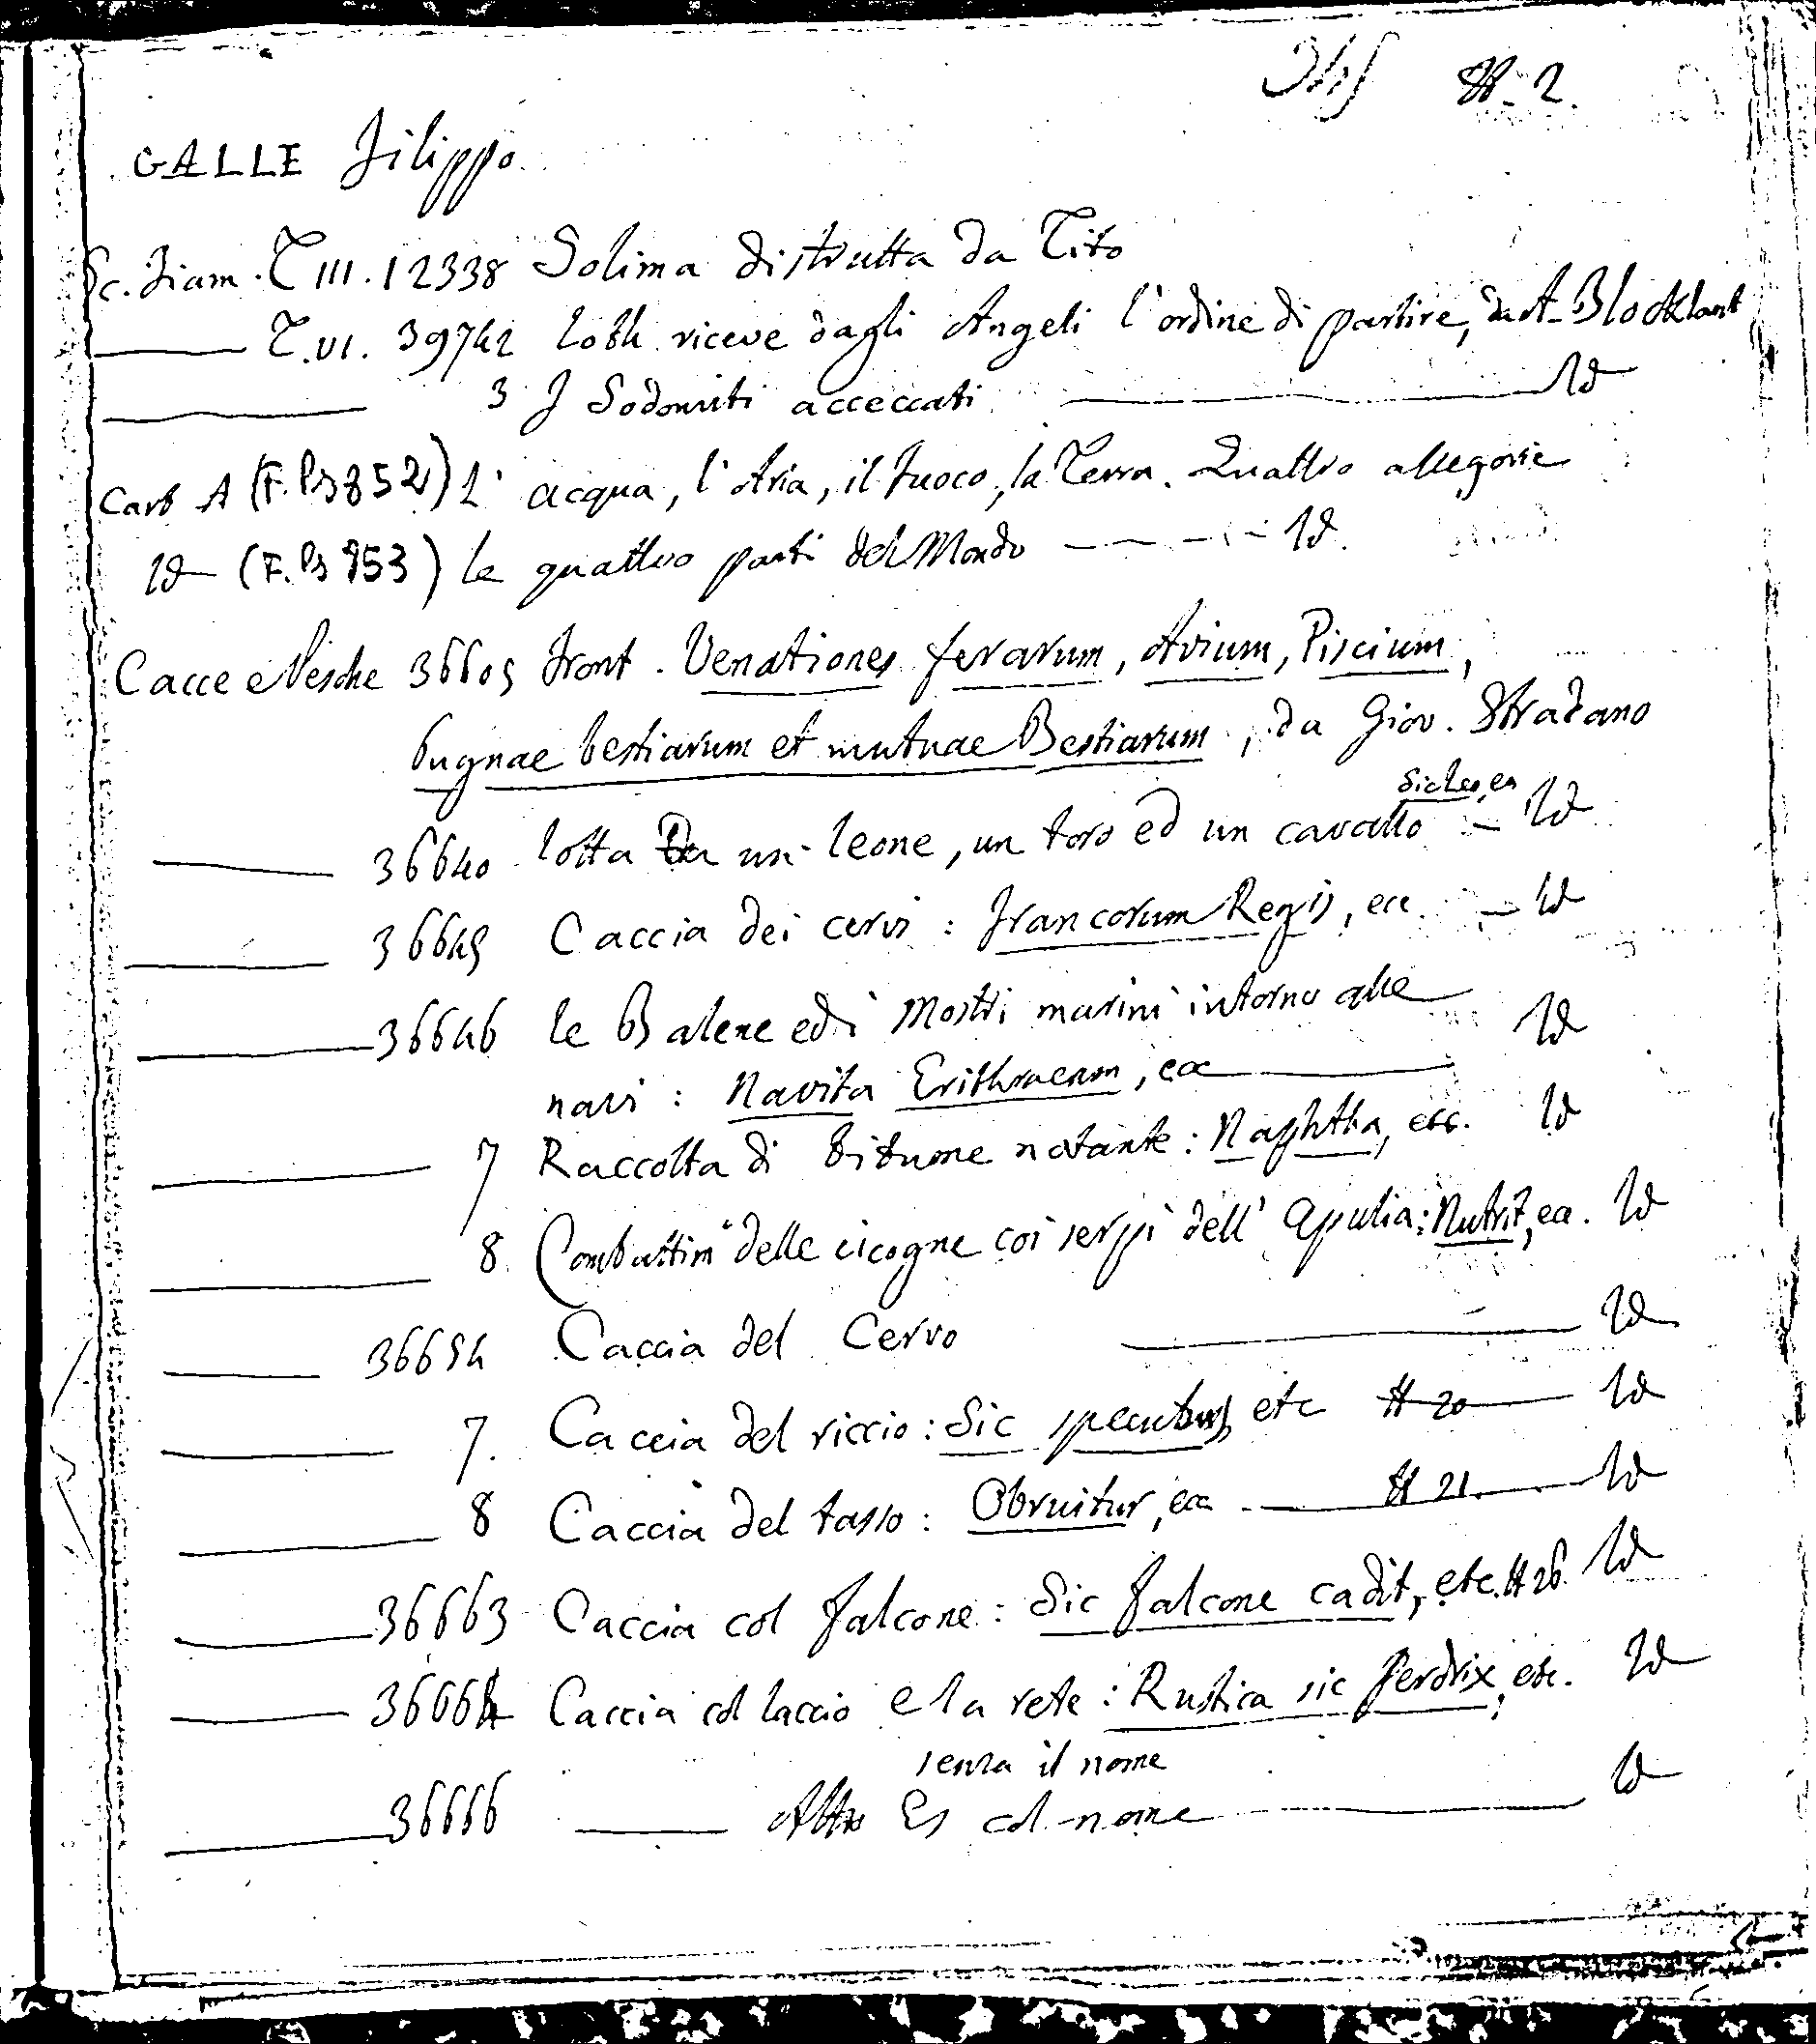 345 # 2.
GALLE Filippo.
Sc. Fiam. T III. 12338 Solima distrutta da Tito
T. VI. 39742 Loth riceve dagli Angeli l'ordine di partire, da A. Blocklant
3 I Sodomiti acceccati Id
Cart A (F. Ps 852) L'acqua, l'Aria, il Fuoco, la Terra. Quattro allegorie
Id (F. Ps 853) le quattro parti del Mondo Id.
Cacce e Pesche 36605 Front. Venationes ferarum, Avium, Piscium,
Pugnae bestiarum et mutuae Bestiarum, da Giov. Stradano
Sic Leo, ea
36640 lotta un leone, un toro ed un cavallo Id
36645 Caccia dei cervi: Francorum Regis, ecc. Id
36646 le Balene ed i Mostri marini intorno alle Id
navi: Navita Erithraeum, ec
7 Raccolta di bitume notante: Naphtha, ecc. Id
8 Combattim° delle cicogne coi serpi dell'Apulia: Nutrit, ea. Id
36654 Caccia del Cervo Id
7. Caccia del riccio: Sic specubus, etc # 20 Id
8 Caccia del tasso: Obruitur, ea # 21. Id
36663 Caccia col falcone: Sic falcone cadit, etc. # 26. Id
36664 Caccia col laccio e la rete: Rustica sic Perdrix, etc. Id
senza il nome
36666 Altro Es col nome Id